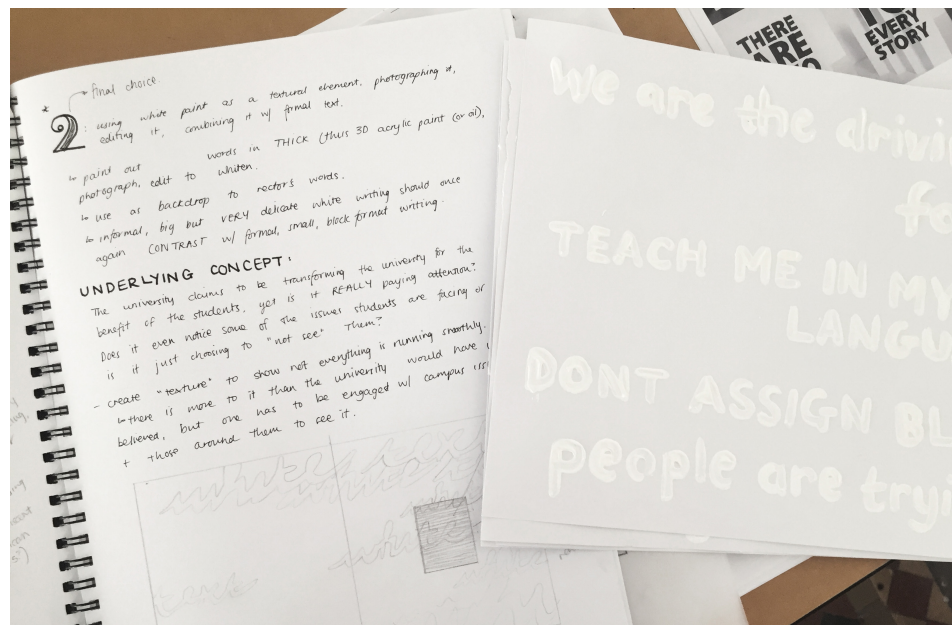 final choice.
2: using white paint as a textural element, photographing it,
editing it, combining it w/ formal text.
↳ paint out words in THICK (thus 3D acrylic paint (or oil),
photograph, edit to whiten.
↳ use as backdrop to rector's words.
↳ informal, big but VERY delicate white writing should once
again CONTRAST w/ formal, small, block format writing.
UNDERLYING CONCEPT:
The university claims to be transforming the university for the
benefit of the students, yet is it REALLY paying attention?
Does it even notice some of the issues students are facing or
is it just choosing to "not see" them?
- create "texture" to show not everything is running smoothly.
↳ there is more to it than the university would have
believed, but one has to be engaged w/ campus
+ those around them to see it.
white text
white
We are the
TEACH ME IN MY
DONT ASSIGN
people are
THERE
ARE
EVERY
STORY